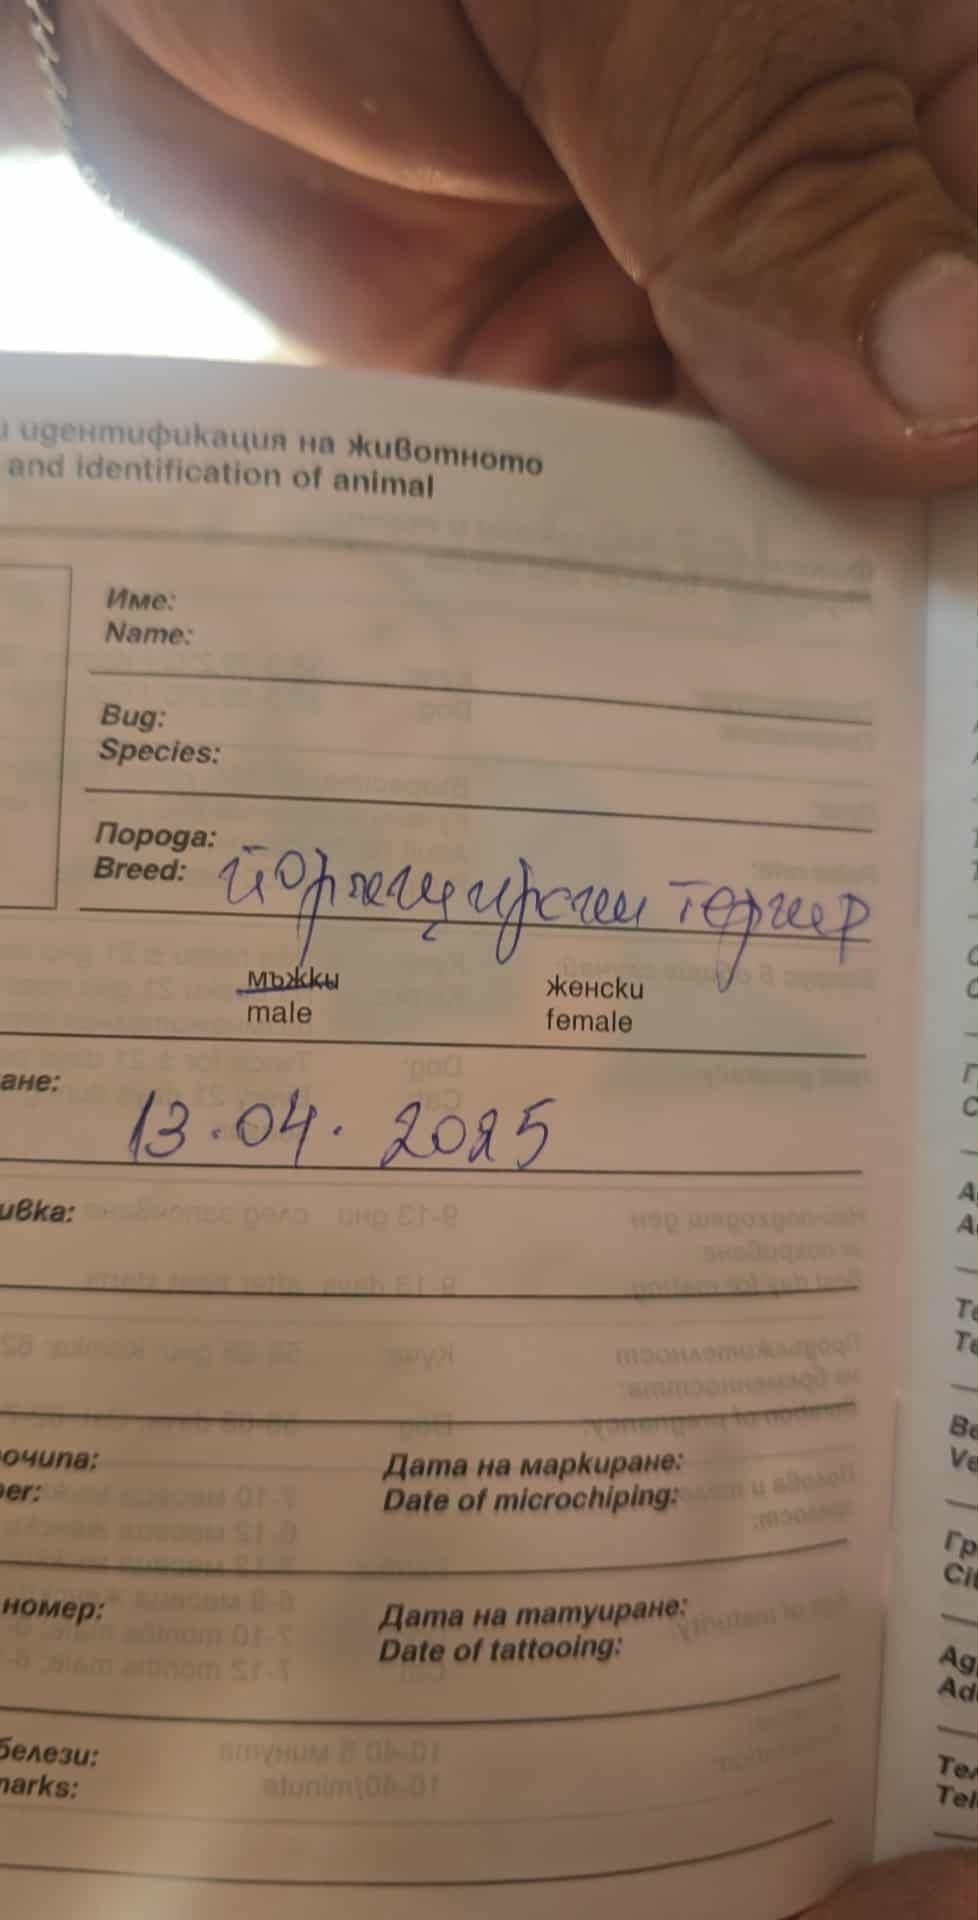 и идентификация на животното
and identification of animal
Име:
Name:
Вид:
Species:
Порода:
Breed: йоркширски териер
мъжки женски
male female
ане:
13.04.2025
ивка:
очипа: Дата на маркиране:
er: Date of microchiping:
номер: Дата на татуиране:
Date of tattooing:
белези:
marks:
Гр
Cit
Ад
Ad
Тел
Tel